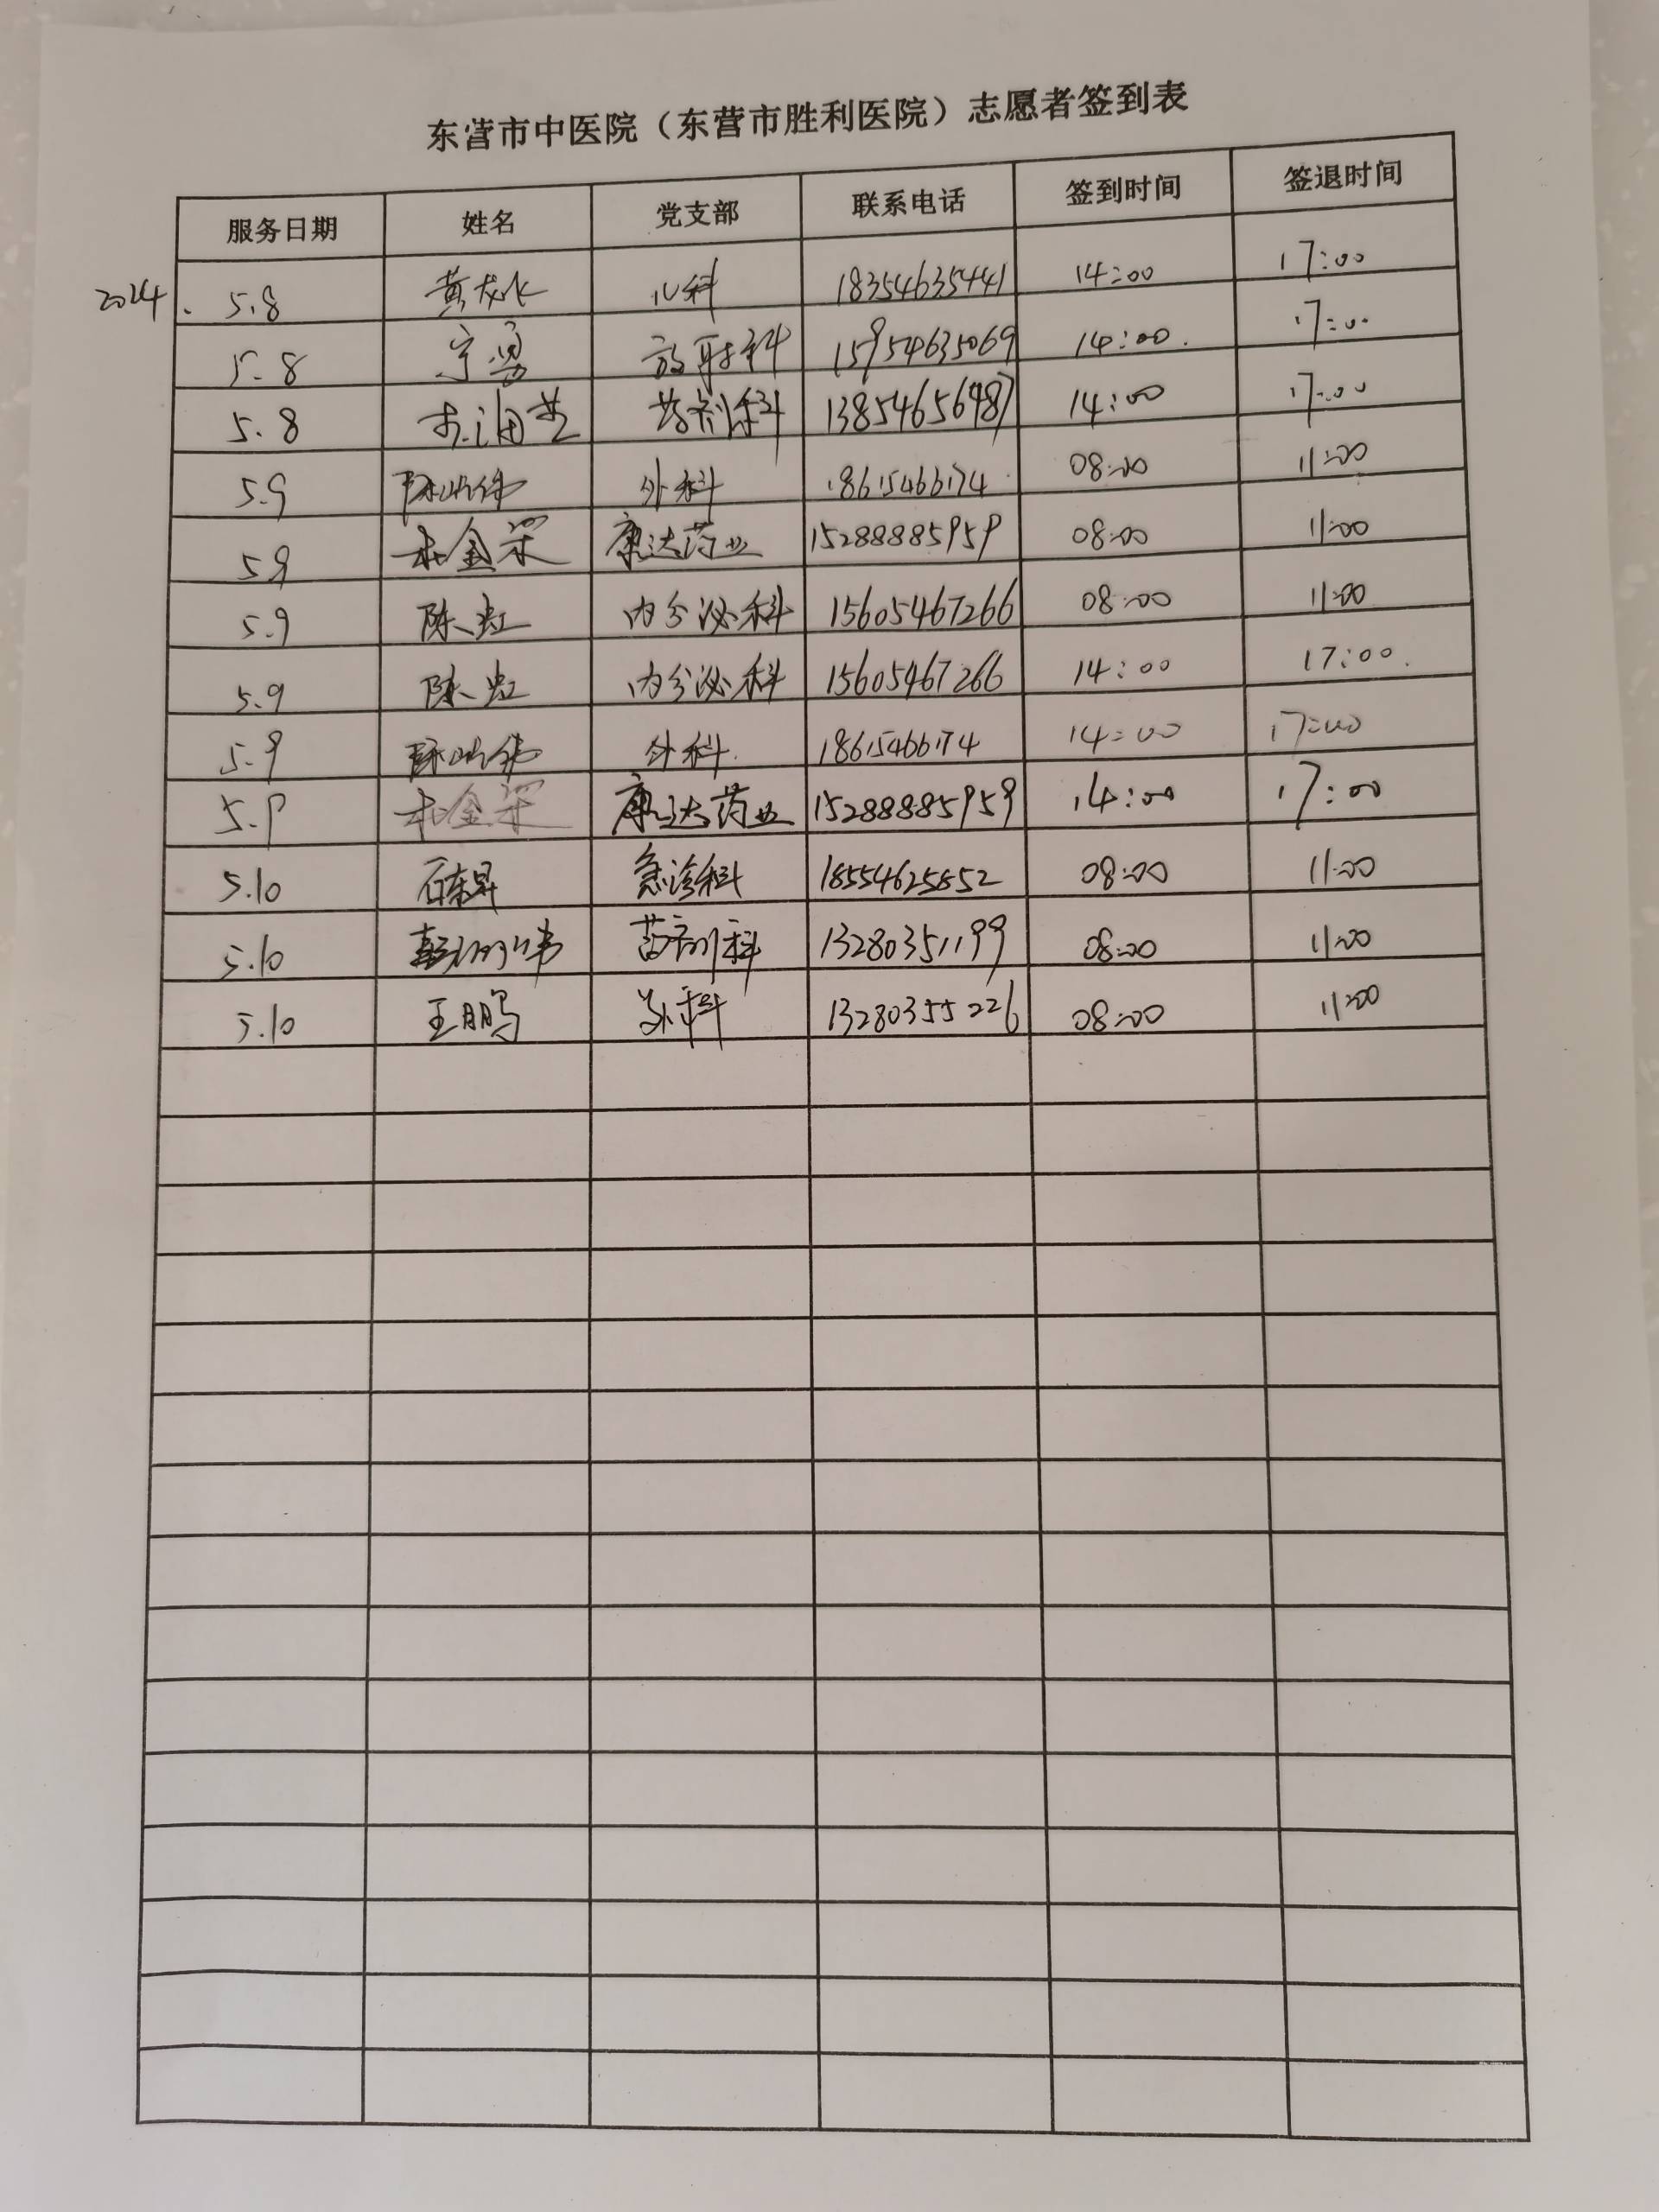 东营市中医院（东营市胜利医院）志愿者签到表
服务日期 姓名 党支部 联系电话 签到时间 签退时间
2024. 5.8 黄 儿科 18354635441 14:00 17:00
5.8 宁勇 放射科 15954635069 14:00. 17:00
5.8 药剂科 13854656487 14:00 17:00
5.9 外科 08:00 11:00
5.9 杜金梁 康达药业 15288885959 08:00 11:00
5.9 陈虹 内分泌科 15605467266 08:00 11:00
5.9 陈虹 内分泌科 15605467266 14:00 17:00.
5.9 外科. 14:00 17:00
5.9 杜金梁 康达药业 15288885959 14:00 17:00
5.10 石 急诊科 18554625852 08:00 11:00
5.10 药剂科 13280351199 08:00 11:00
5.10 王鹏 科 13280355226 08:00 11:00